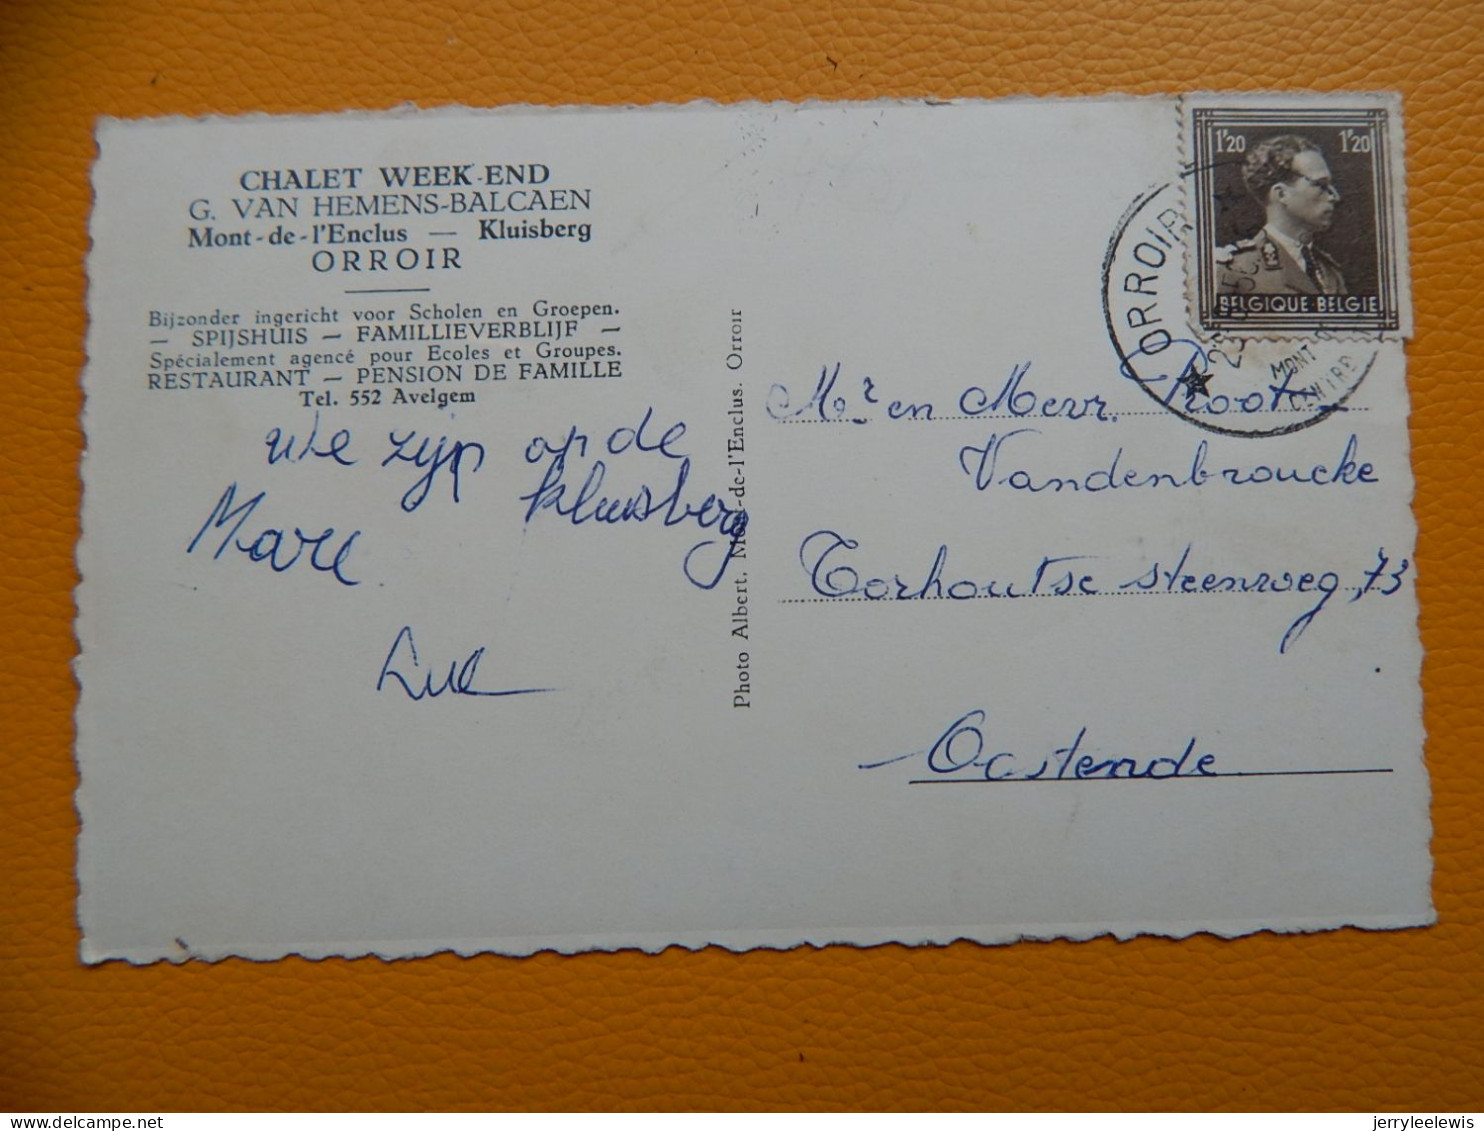 CHALET WEEK-END
G. VAN HEMENS-BALCAEN
Mont-de-l'Enclus — Kluisberg
ORROIR
Bijzonder ingericht voor Scholen en Groepen.
— SPIJSHUIS — FAMILLIEVERBLIJF —
Spécialement agencé pour Ecoles et Groupes.
RESTAURANT — PENSION DE FAMILLE
Tel. 552 Avelgem
We zijn op de
Kluisberg
Marc
Luc
Photo Albert, Mont-de-l'Enclus. Orroir
1'20 1'20
BELGIQUE-BELGIE
ORROIR
MONT
CENTRE
Mr en Mevr. Proot
Vandenbroucke
Torhoutse steenweg, 73
Oostende
jerryleelewis
delcampe.net